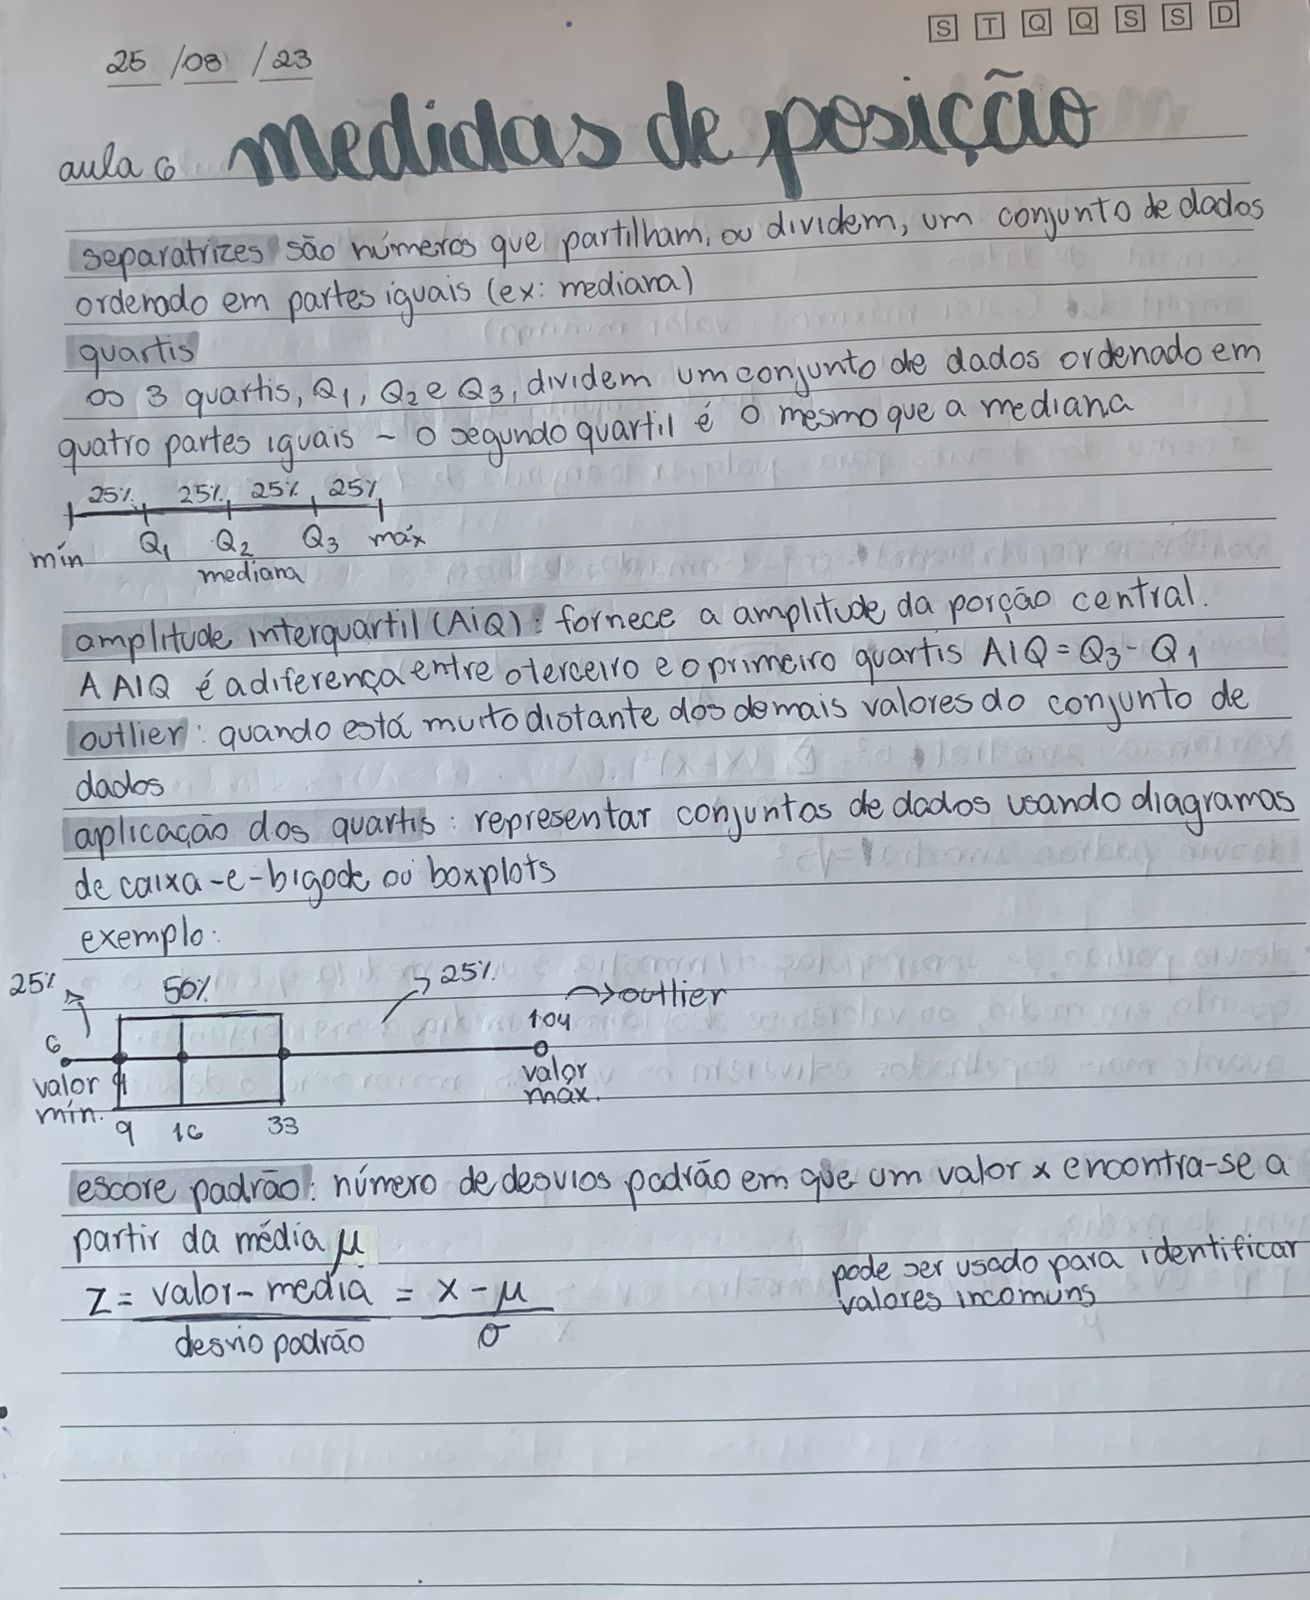 S T Q Q S S D
25 / 08 / 23
aula 6 medidas de posição
separatrizes são números que partilham, ou dividem, um conjunto de dados
ordenado em partes iguais (ex: mediana)
quartis
os 3 quartis, Q1, Q2 e Q3, dividem um conjunto de dados ordenado em
quatro partes iguais ~ o segundo quartil é o mesmo que a mediana
25% 25% 25% 25%
mín Q1 Q2 Q3 máx
mediana
amplitude interquartil (AiQ): fornece a amplitude da porção central.
A AIQ é a diferença entre o terceiro e o primeiro quartis AIQ = Q3 - Q1
outlier: quando está muito distante dos demais valores do conjunto de
dados
aplicação dos quartis: representar conjuntos de dados usando diagramas
de caixa-e-bigode ou boxplots
exemplo:
25% 50% 25% outlier
6 104
valor valor
mín. máx.
9 16 33
escore padrão: número de desvios padrão em que um valor x encontra-se a
partir da média μ
pode ser usado para identificar
valores incomuns
Z = valor - media = x - μ
desvio padrão σ